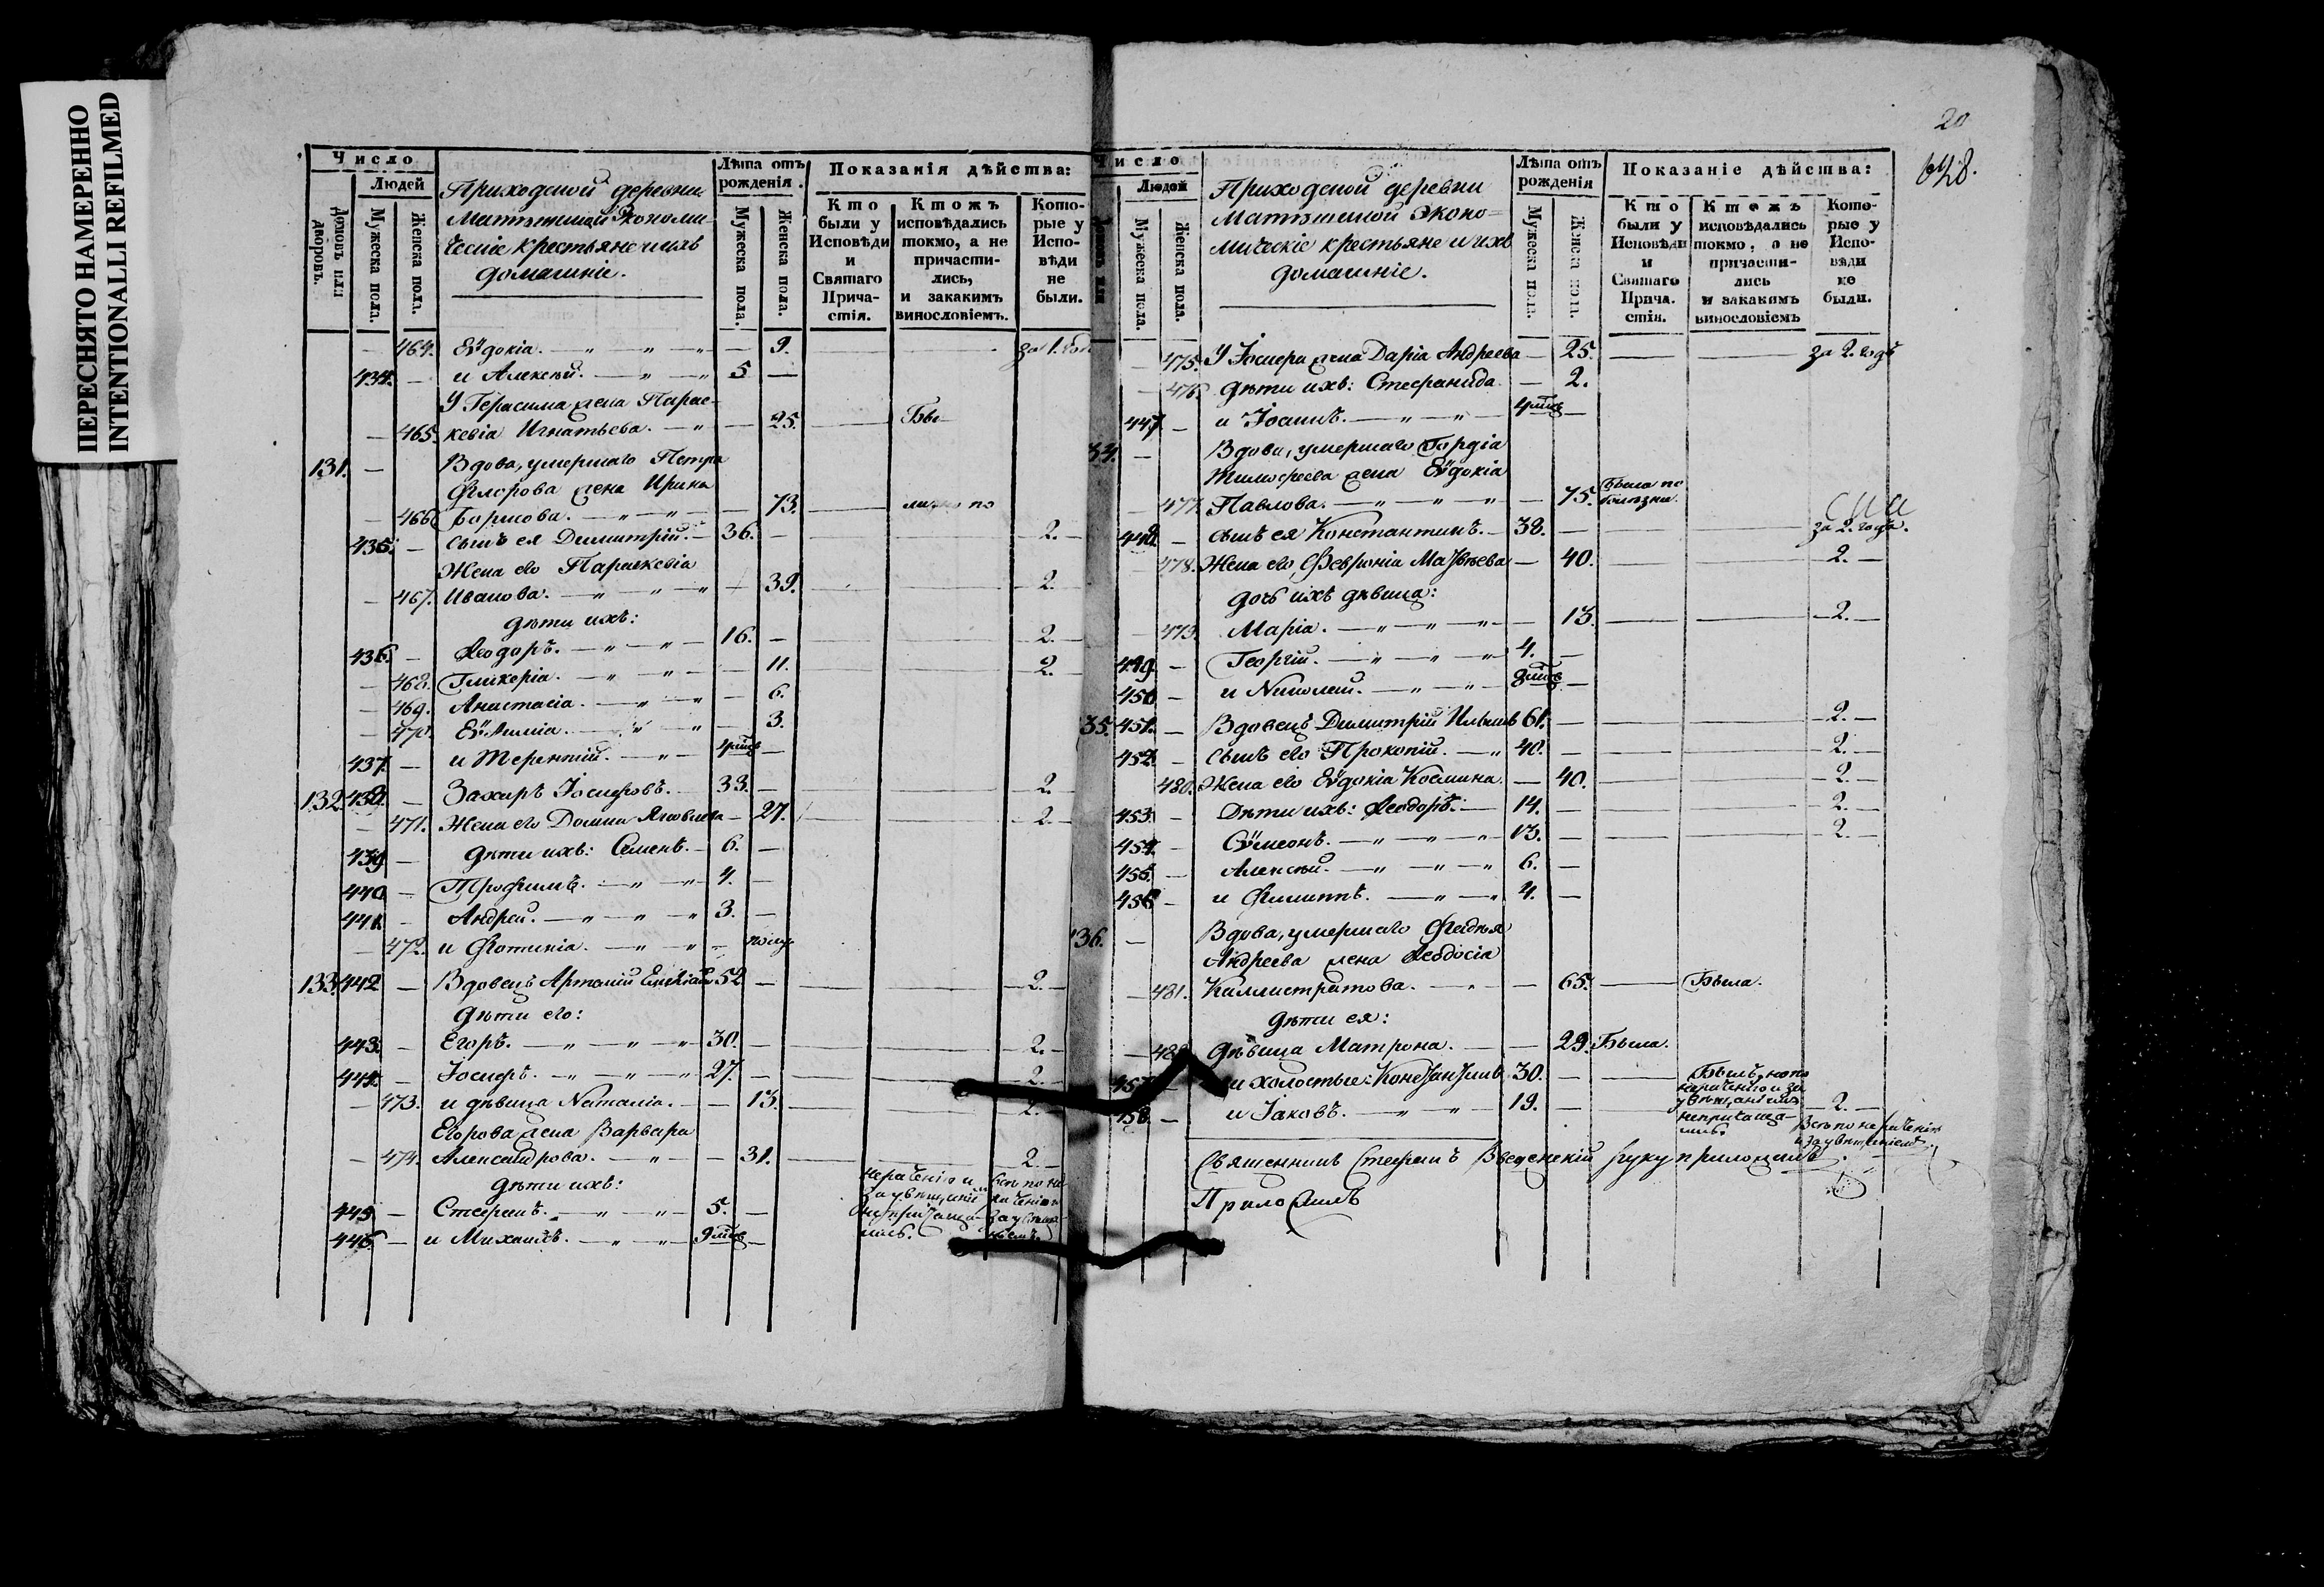 ПЕРЕСНЯТО НАМЕРЕННО
INTENTIONALLI REFILMED
Число
Людей
Домовъ или дворовъ.
Мужеска пола.
Женска пола.
Приходской деревни
Экономи
ческіе крестьяне и ихъ
домашніе.
Лѣта отъ рожденія.
Мужеска пола.
Женска пола.
Показанія дѣйства:
Кто были у Исповѣди и Святаго Прича- стія.
Ктожъ исповѣдались токмо, а не причасти- лись, и закакимъ винословіемъ.
Кото- рые у Испо- вѣди не были.
464. Еѵдокія. 9.
434. и Алексѣй. 5
У Герасима жена Парас-
465. кевія Игнатьева. 25.
131. Вдова, умершаго Петра
Флорова жена Ирина
466. Борисова. 73.
435. сынъ ея Димитрій. 36. 2.
Жена его Параскевія
467. Иванова. 39. 2.
дѣти ихъ:
436. Ѳеодоръ. 16. 2.
468. Гликерія. 11. 2.
469. Анастасія. 6.
470. Еѵѳимія. 3.
437. и Терентій. 4
132. 438. Захаръ Іосифовъ. 33. 2
471. Жена его Домна Яковлева 27. 2.
439. дѣти ихъ: Семенъ. 6.
440. Трофимъ. 4.
441. Андрей. 3.
472. и Фотинія.
133. 442 Вдовецъ Артемій 52 2.
Дѣти его:
443. Егоръ. 30. 2.
444. Іосифъ. 27. 2.
473. и дѣвица Наталія. 13. 2.
Егорова жена Варвара
474. Александрова. 31. 2.
дѣти ихъ:
445. Стефанъ. 5.
446. и Михаилъ. 9
20
648.
Число
Людей
Мужеска пола.
Женска пола.
Приходской деревни
Эконо=
мическіе крестьяне и ихъ
домашніе.
Лѣта отъ рожденія
Мужеска пола.
Женска пола.
Показаніе дѣйства:
Кто были у Исповѣди и Святаго Прича. стія.
Ктожъ исповѣдались токмо, а не причасти- лись и закакимъ винословіемъ
Кото- рые у Испо- вѣди не были.
475. У Іосифа жена Дарія Андреева 25. за 2. годъ
476. дѣти ихъ: Стефанида 2.
447. и Іоаннъ. 4
34. Вдова, умершаго Гордіа
Тимофеева жена Еѵдокіа
477. Павлова. 75. Была по болѣзни.
448. сынъ ея Константинъ. 38. за 2. года.
478. Жена его Феѵронія 40. 2.
дочь ихъ дѣвица:
479. Марія. 13. 2.
449. Георгій. 4.
450. и Николай. 8
35. 451. Вдовецъ Димитрій Ильинъ 61. 2.
452. сынъ его Прокопій. 40. 2.
480. Жена его Еѵдокіа Космина 40. 2.
453. Дѣти ихъ: Ѳеодоръ. 14. 2.
454. Сѵмеонъ. 13. 2
455. Алексѣй. 6.
456 и Филиппъ. 4.
136. Вдова, умершаго
Андреева жена Ѳеодосіа
481. Каллистратова. 65. Была.
дѣти ея:
482 дѣвица Матрона. 29. Была.
457 и холостые: Константинъ 30. Былъ, но по
458. и Іаковъ. 19. 2.
Священникъ Стефанъ Введенскій руку приложилъ
Приложилъ